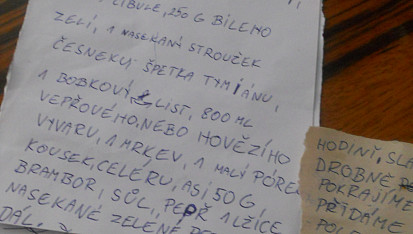 CIBULE, 250 G BÍLEHO
ZELÍ, 1 NASEKANÝ STROUŽEK
ČESNEKU, ŠPETKA TYMIÁNU,
1 BOBKOVÝ LIST, 800 ML
VEPŘOVÉHO, NEBO HOVĚZÍHO
VÝVARU, 1 MRKEV, 1 MALÝ PÓREK
KOUSEK, CELÉRU, ASI 50 G
BRAMBOR, SŮL, PEPŘ 1 LŽÍCE
NASEKANÉ ZELENÉ
DÁLI
HODINY, SL
DROBNĚ
POKRÁJÍME
PŘIDÁME